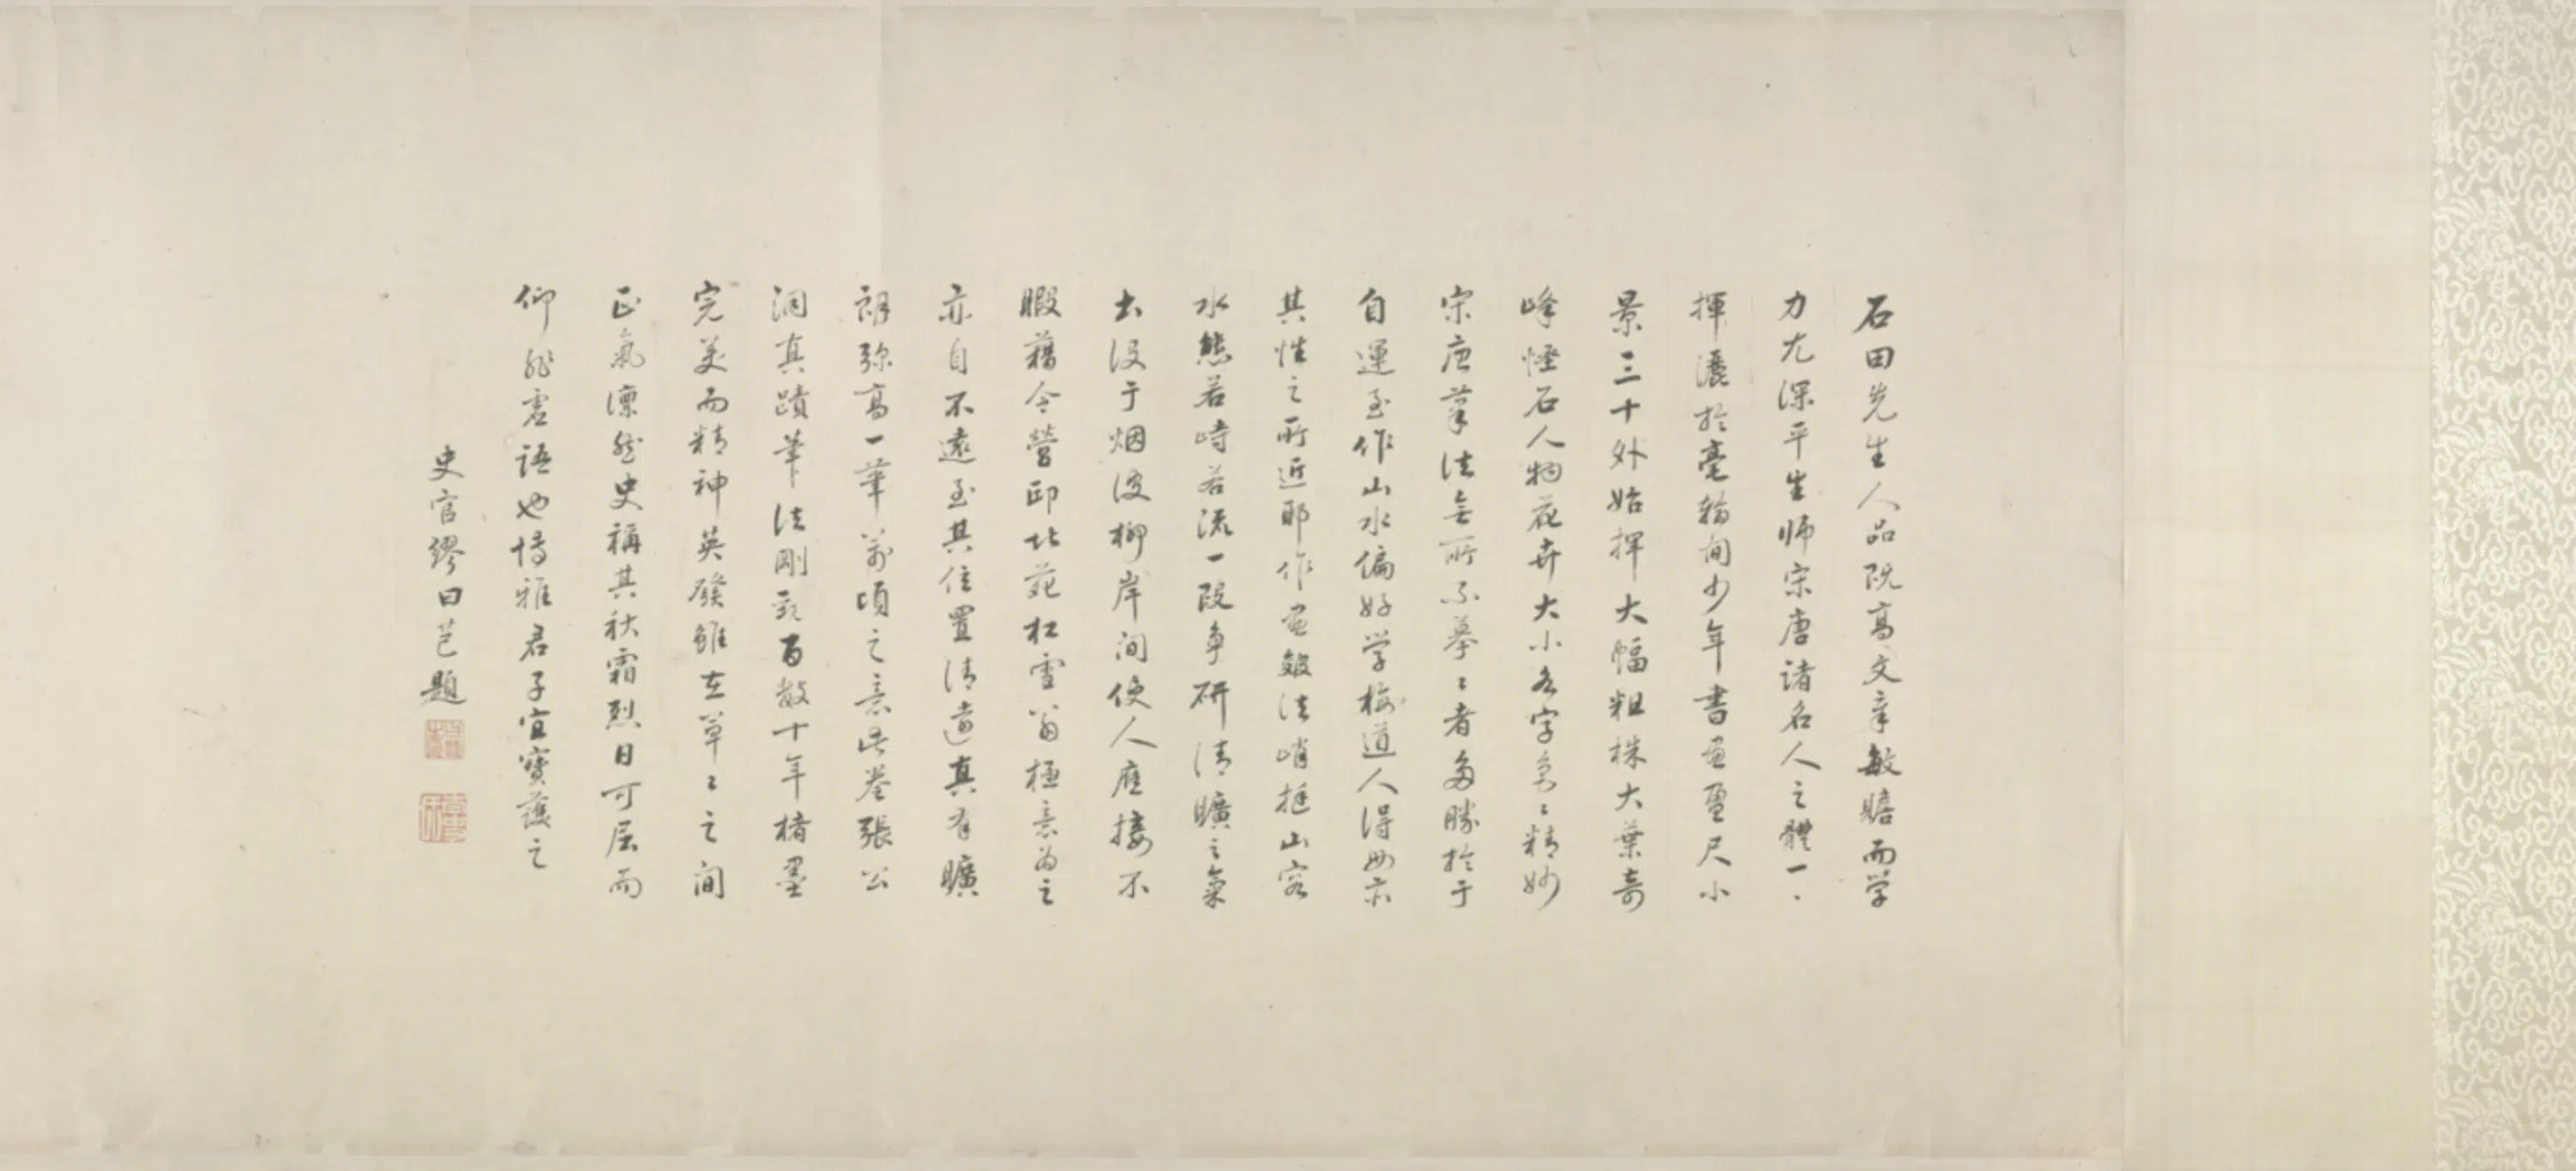 石田先生人品既高文章敏贍而学
力尤深平生师宋唐诸名人之體一、
揮灑於毫翰间少年書畫盈尺小
景三十外始揮大幅粗株大葉奇
峰怪石人物花卉大小各字爲〻精妙
宋唐筆法無所不摹〻者多勝於于
自運至作山水偏好学梅道人得毋亦
其性之所近耶作畫皴法峭挺山容
水態若峙若流一段争研清曠之氣
出没于烟波柳岸间使人應接不
暇藉令營邱北苑松雪翁極意为之
亦自不遠至其位置清遠真有曠
朗弥高一筆萬頃之意此卷張公
洞真蹟筆法刚勁百数十年楮墨
完美而精神英發雖在草〻之间
正氣凛然史稱其秋霜烈日可层而
仰非虚语也博雅君子宜寶蔵之
史官繆曰芑題